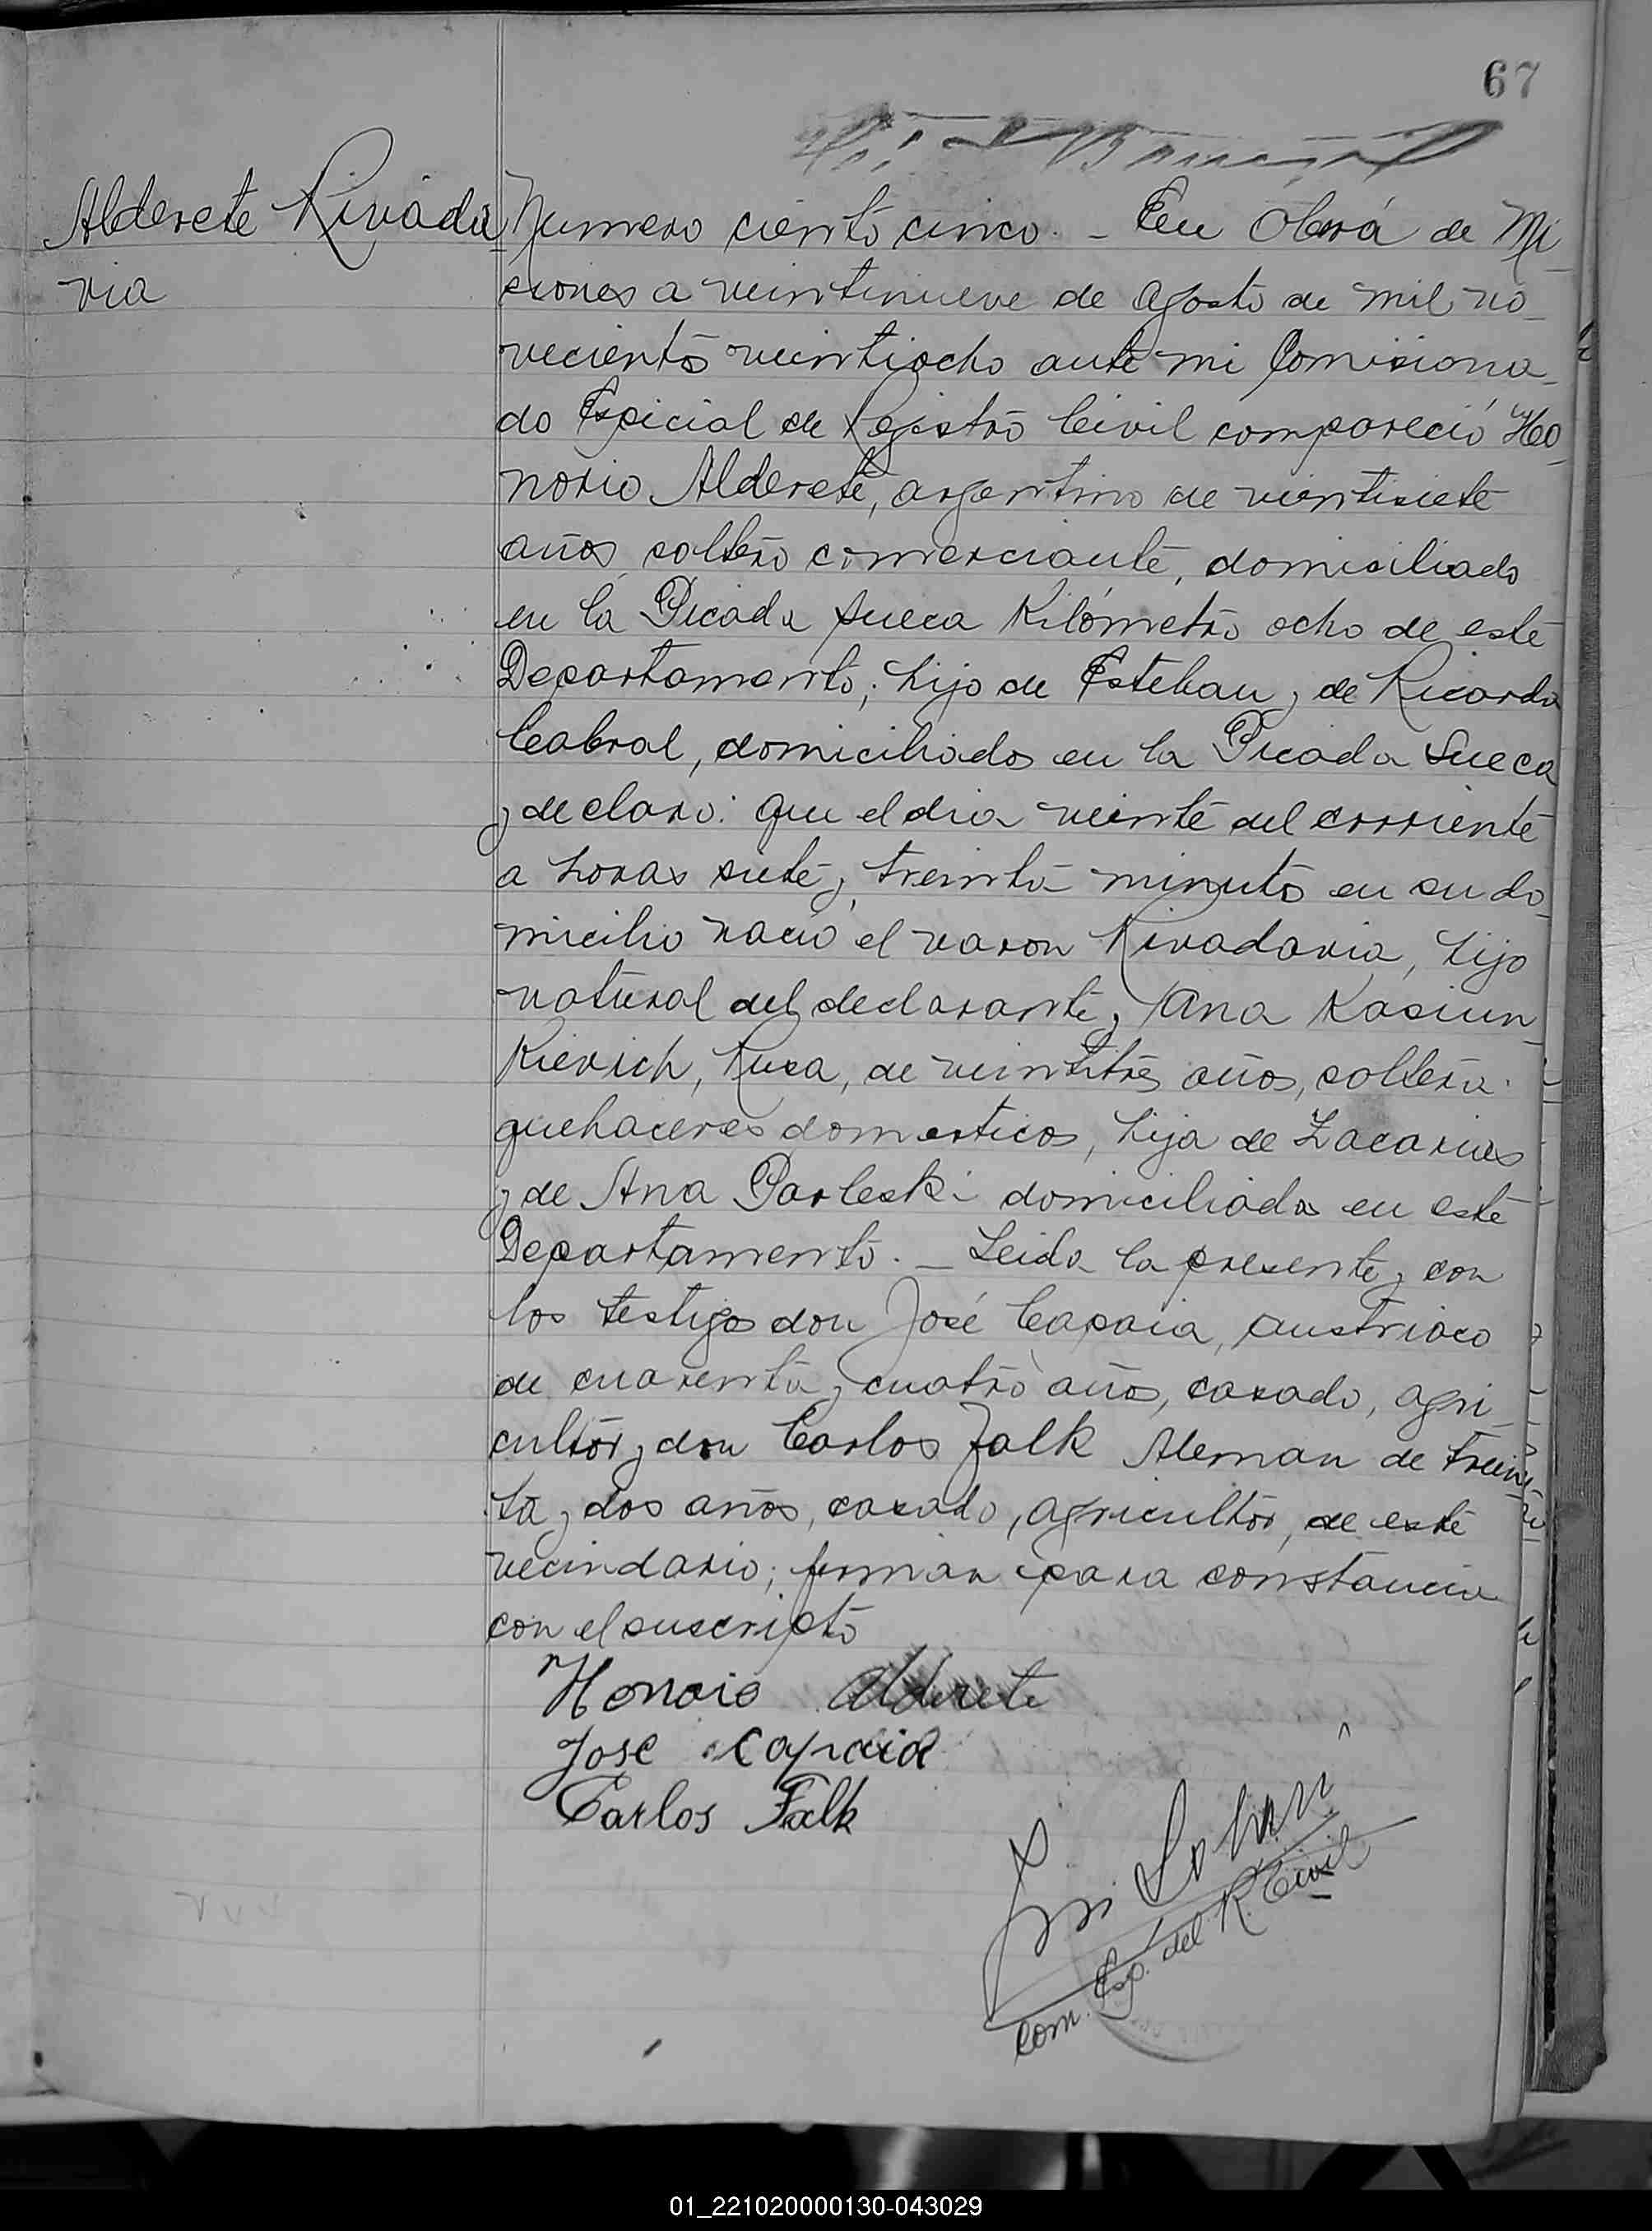 67
Alderete Rivada
via
Numero ciento cinco. - En Oberá de Mi
siones a veintinueve de Agosto de mil no
vecientos veintiocho ante mi Comisiona
do Especial de Registro Civil compareció Ho
norio Alderete, argentino de vientisiete
años, soltero comerciante, domiciliado
en la Picada Sueca Kilómetro ocho de este
Departamento; hijo de Esteban y de Ricarda
Cabral, domiciliados en la Picada Sueca
y declaro: que el dia veinte del corriente
a horas siete y treinta minutos en su do
micilio nació el varon Rivadavia, hijo
natural del declarante y Ana Kasiun
Kievich, Rusa, de veintitres años, soltera
quehaceres domesticos, hija de Zacarias
y de Ana Parleski domiciliada en este
Departamento. - Leida la presente y con
los testigos don José Capaia, austriaco
de cuarenta y cuatro años, casado, agri
cultor y don Carlos Falk Aleman de trein
ta y dos años, casado, agricultor, de este
vecindario; firman para constancia
con el suscripto
Honorio Alderete
Jose Capaia
Carlos Falk
Com. Esp. del R. Civil
01_221020000130-043029